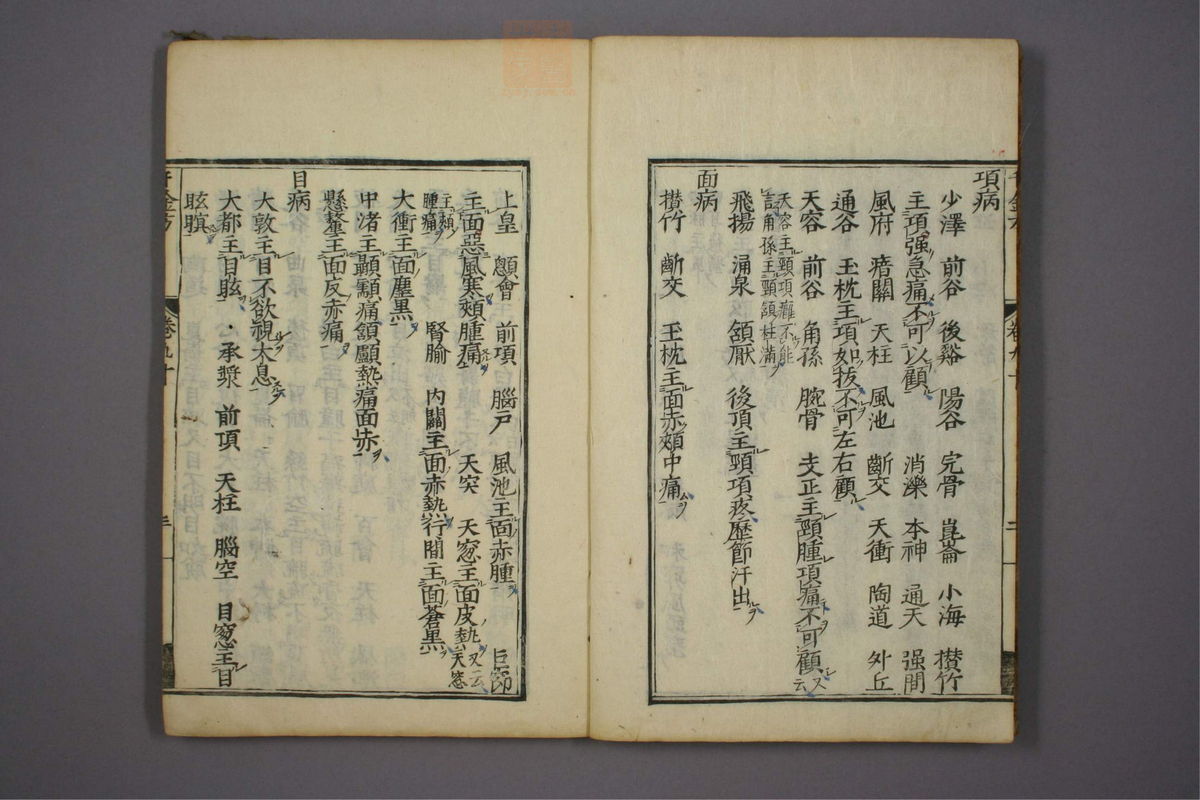 項病
少澤 前谷 後谿 陽谷 完骨 崑崙 小海 攅竹
主項强急痛不可以顧 消濼 本神 通天 强間
風府 瘖門 天柱 風池 齗交 天衝 陶道 外丘
通谷 玉枕主項如拔不可左右顧
天容 前谷 角孫 腕骨 支正主頸腫項痛不可顧 又云
天容主頸項癰不能
言角孫主頸頷柱滿
飛揚 涌泉 頷厭 後頂主頸項疼歷節汗出
面病
攅竹 齗交 玉枕主面赤頰中痛
上星 顖會 前項 腦戸 風池主面赤腫 巨節
主面惡風寒頰腫痛 天突 天窓主面皮熱 又云天窓
主頰
腫痛
大衝主面塵黒 腎腧 内關主面赤熱 行間主面蒼黒
中渚主顳顬痛頷顱熱痛面赤
懸釐主面皮赤痛
目病
大敦主目不欲視太息
大都主目眩 承漿 前項 天柱 腦空 目窓主目
眩瞑
千金方
卷九十